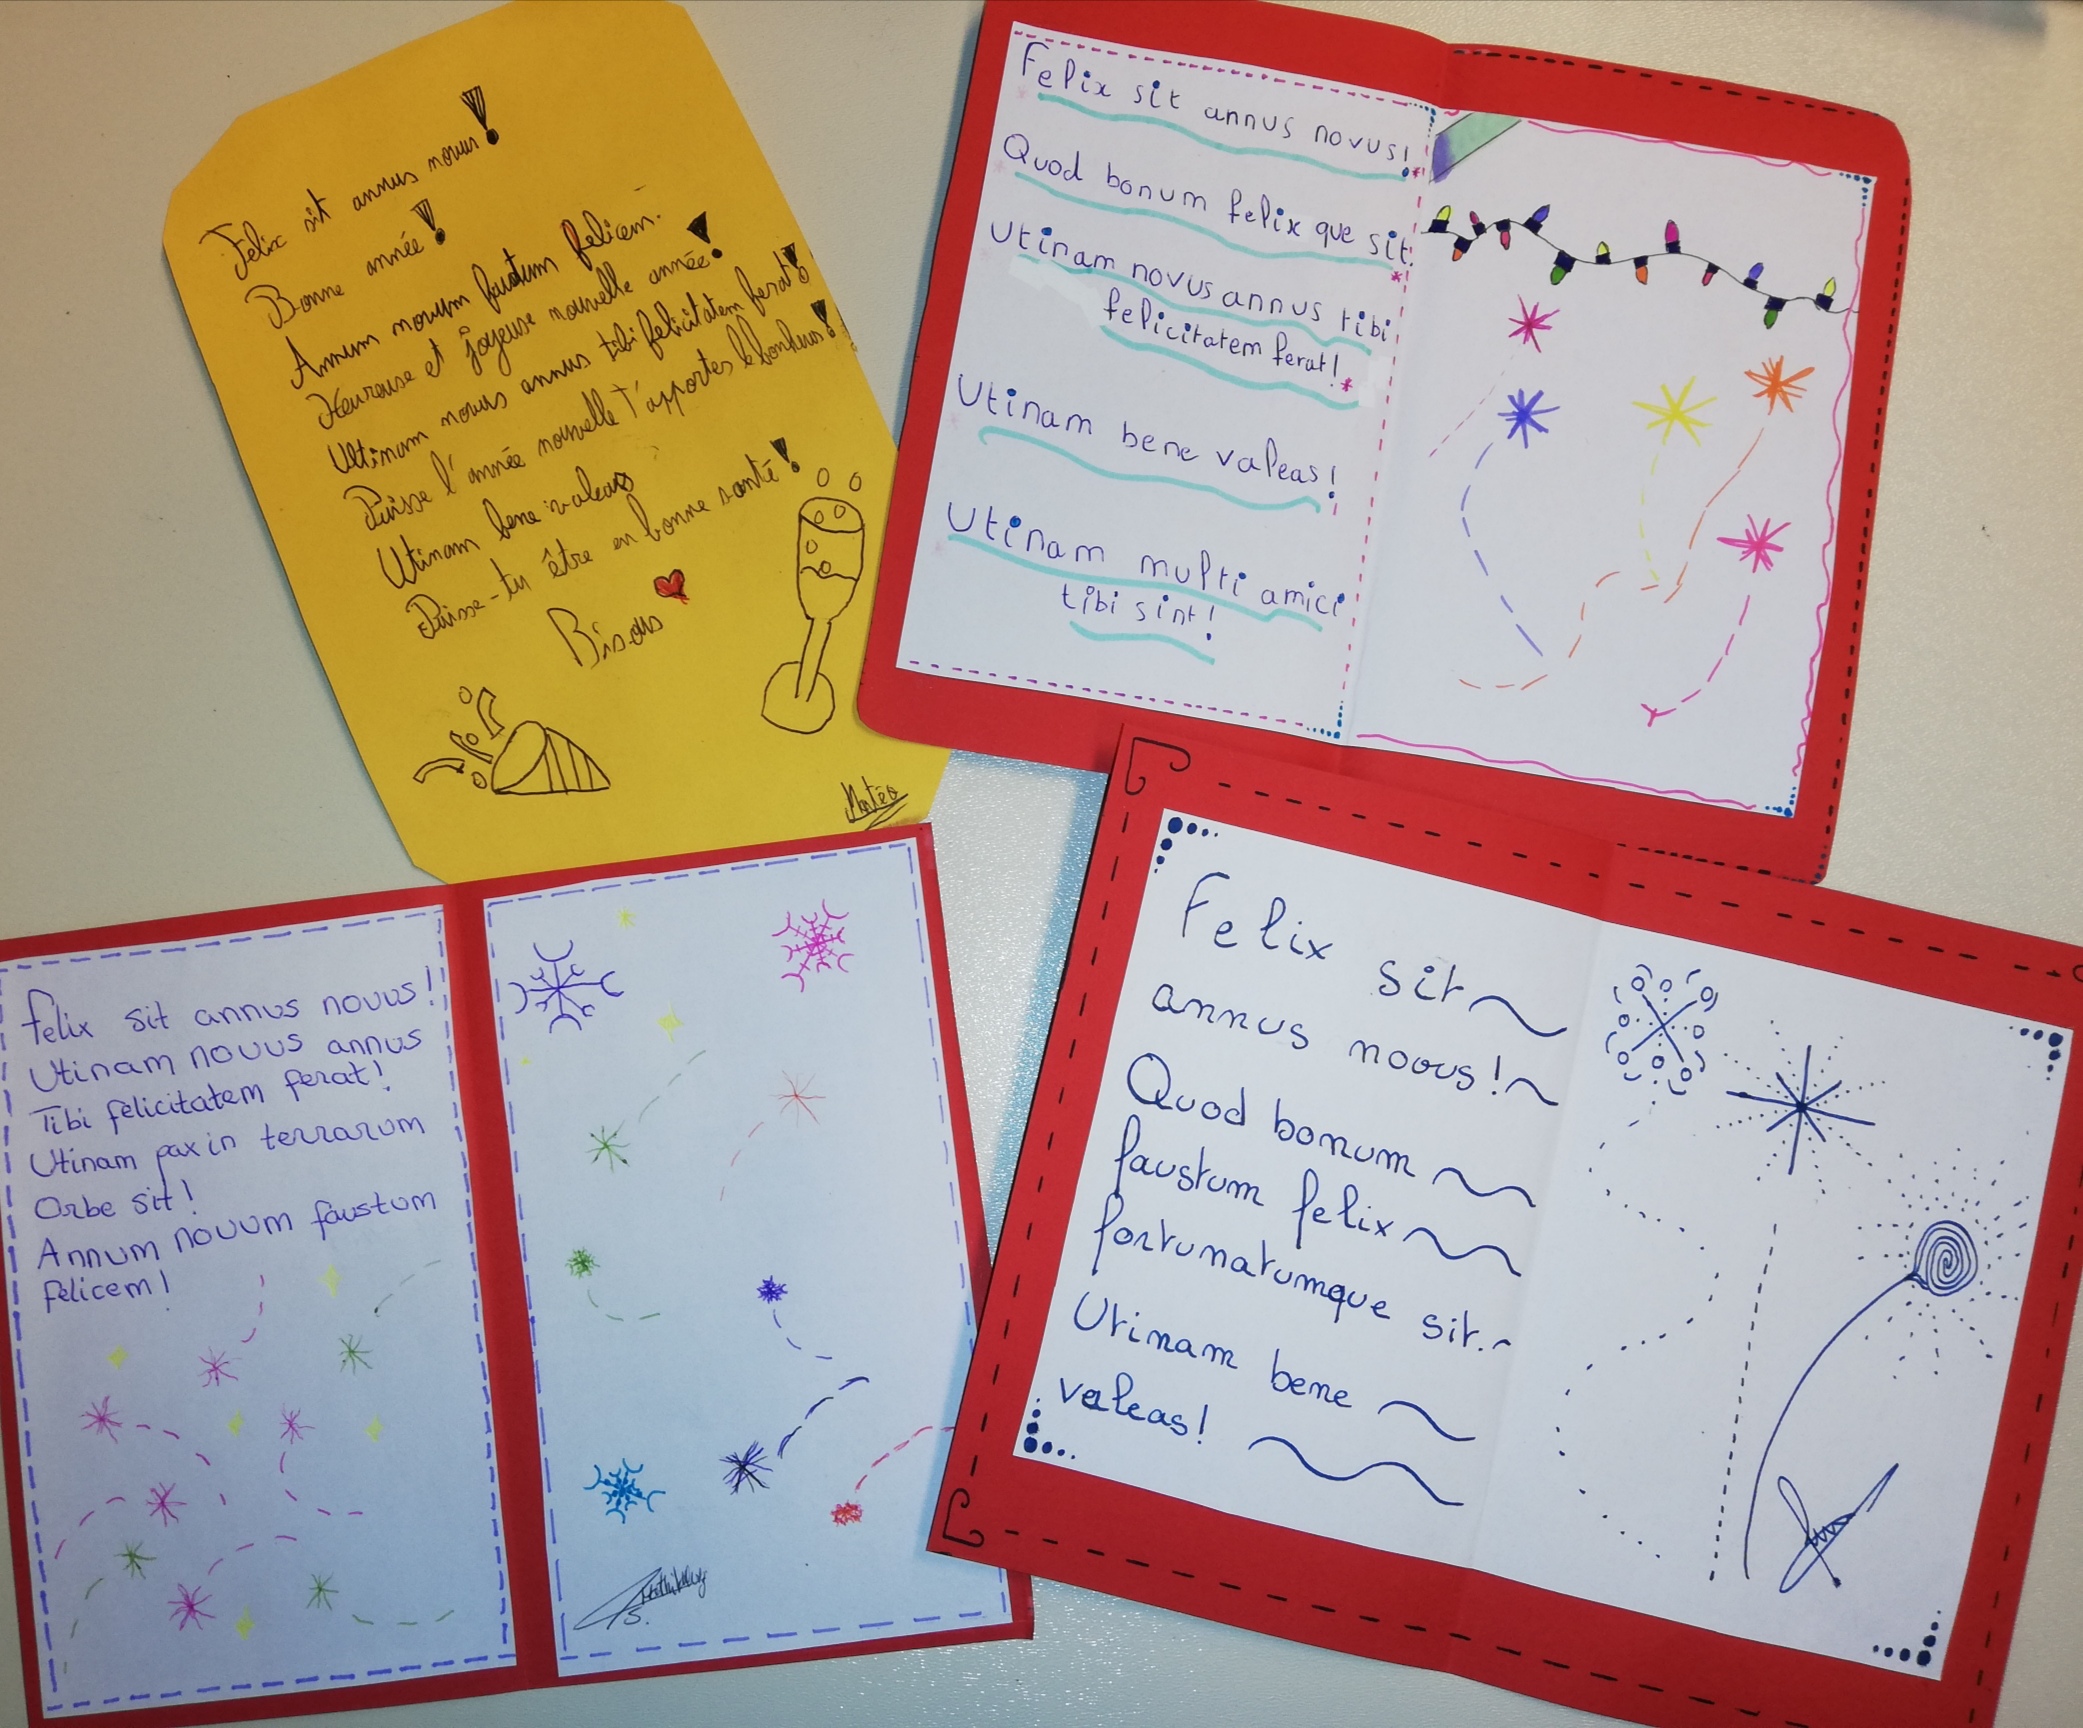 Felix sit annus novus!
Bonne année!
Annum novum faustum felicem.
Heureuse et joyeuse nouvelle année!
Utinam novus annus tibi felicitatem ferat!
Puisse l'année nouvelle t'apportes le bonheur!
Utinam bene valeas
Puisse-tu être en bonne santé!
Bisous
Mattéo
Felix sit annus novus!
Quod bonum felix que sit!
Utinam novus annus tibi
felicitatem ferat!
Utinam bene valeas!
Utinam multi amici
tibi sint!
Felix sit annus novus!
Utinam novus annus
Tibi felicitatem ferat!
Utinam pax in terrarum
Orbe sit!
Annum novum faustum
felicem!
S.
Felix sit
annus novus!
Quod bonum
faustum felix
fortunatumque sit.
Utinam bene
valeas!